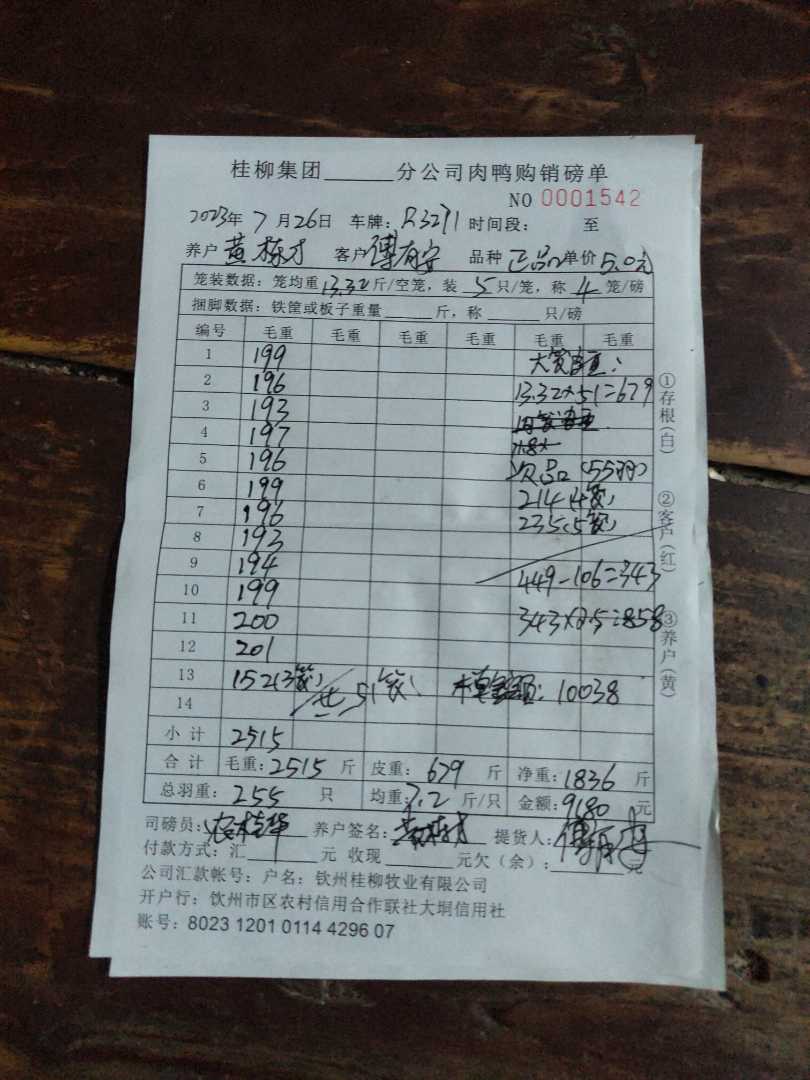 桂柳集团______分公司肉鸭购销磅单
NO 0001542
2023年7月26日 车牌：R3271 时间段： 至
养户 黄栋才 客户 傅有安 品种 正品 单价 5.0元
笼装数据：笼均重13.32斤/空笼，装 5 只/笼，称 4 笼/磅
捆脚数据：铁筐或板子重量______斤，称______只/磅
编号 毛重 毛重 毛重 毛重 毛重 毛重
1 199
2 196 13.32×51=679
3 193
4 197
5 196 次品（55羽）
6 199 214（4笼）
7 196 235（5笼）
8 193
9 194 449-106=343
10 199
11 200 343×2.5=858
12 201
13 152（3笼） 共51笼 10038
14
小计 2515
合计 毛重：2515斤 皮重：679斤 净重：1836斤
总羽重：255只 均重：7.2斤/只 金额：9180元
司磅员： 养户签名：黄栋才 提货人：
付款方式：汇______元 收现______元欠（余）：______元
公司汇款帐号：户名：钦州桂柳牧业有限公司
开户行：钦州市区农村信用合作联社大垌信用社
账号：8023 1201 0114 4296 07
①存根（白） ②客户（红） ③养户（黄）